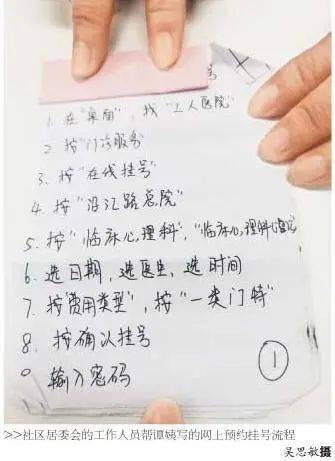 1. 在"桌面", 找"工人医院"
2. 按"门诊服务"
3. 按"在线挂号"
4. 按"沿江路总院"
5. 按"临床心理科", "临床心理科
6. 选日期, 选医生, 选时间
7. 按"费用类型", 按"一类门特"
8. 按确认挂号
输入密码
①
>>社区居委会的工作人员帮谭姨写的网上预约挂号流程
吴思敏摄